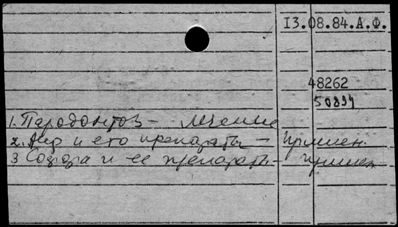 13.08.84.А.Ф.
48262
50834
1. Пародонтоз – лечение
2. и его препараты – примен.
3. и ее препарат. – примен